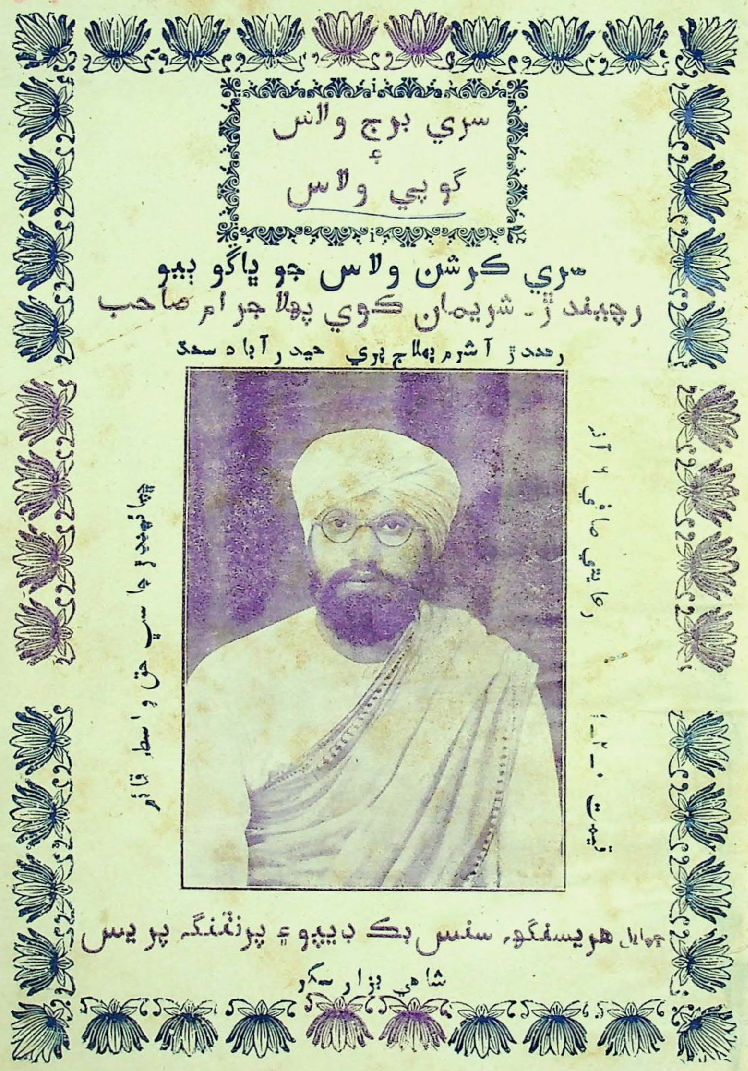 سري برج ولاس
۽
گوپي ولاس
سري ڪرشن ولاس جو ڀاڱو ٻيو
رچيندڙ ـ شريمان ڪوي پهلاجرام صاحب
رهندڙ آشرم پهلاج پري حيدرآباد سنڌ
ڇپائيندڙ جا سڀ حق و اسطا قائم
رعايتي صافي ۶ آنا
قيمت
ڇپايل هريسنگهہ سنس بڪ ڊيپو ۽ پرنٽنگہ پريس
شاهي بزار سکر